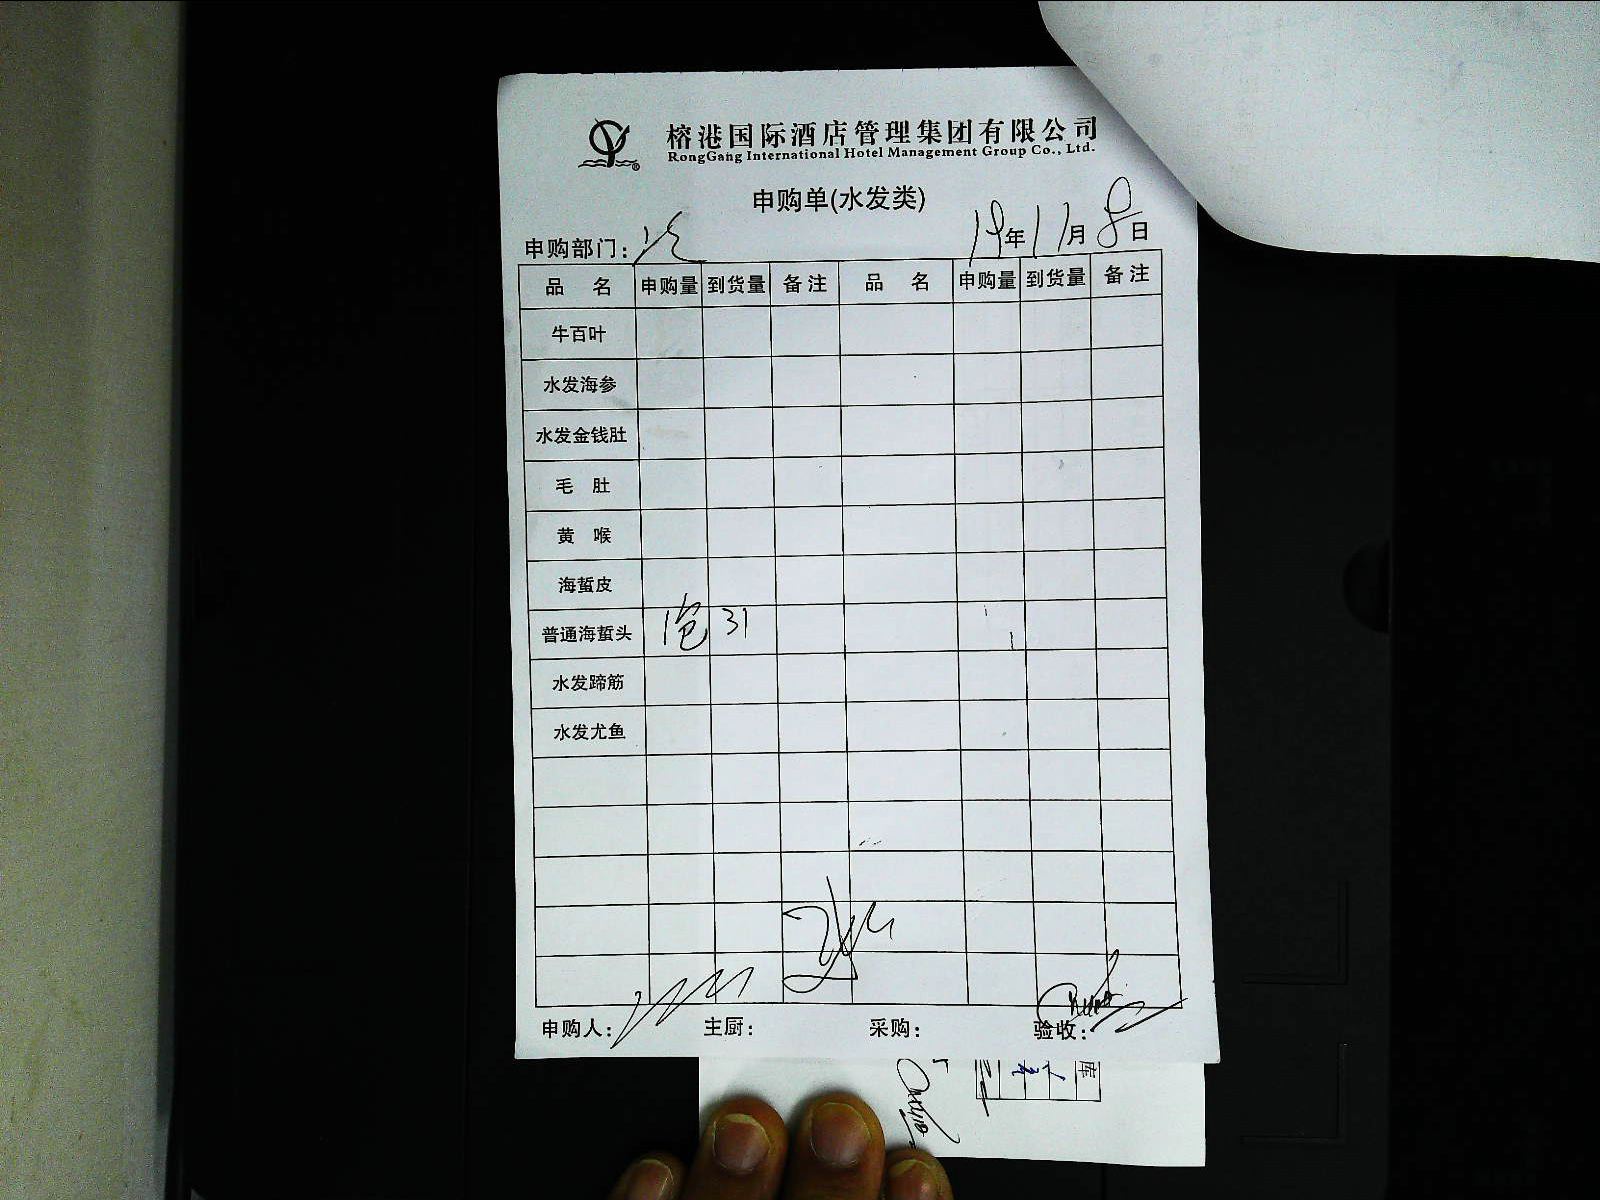 榕港国际酒店管理集团有限公司
RongGang International Hotel Management Group Co., Ltd.
申购单(水发类)
申购部门: 19年11月8日
品 名 申购量 到货量 备注 品 名 申购量 到货量 备注
牛百叶
水发海参
水发金钱肚
毛 肚
黄 喉
海蜇皮
普通海蜇头 1包 31
水发蹄筋
水发尤鱼
申购人: 主厨: 采购: 验收:
库